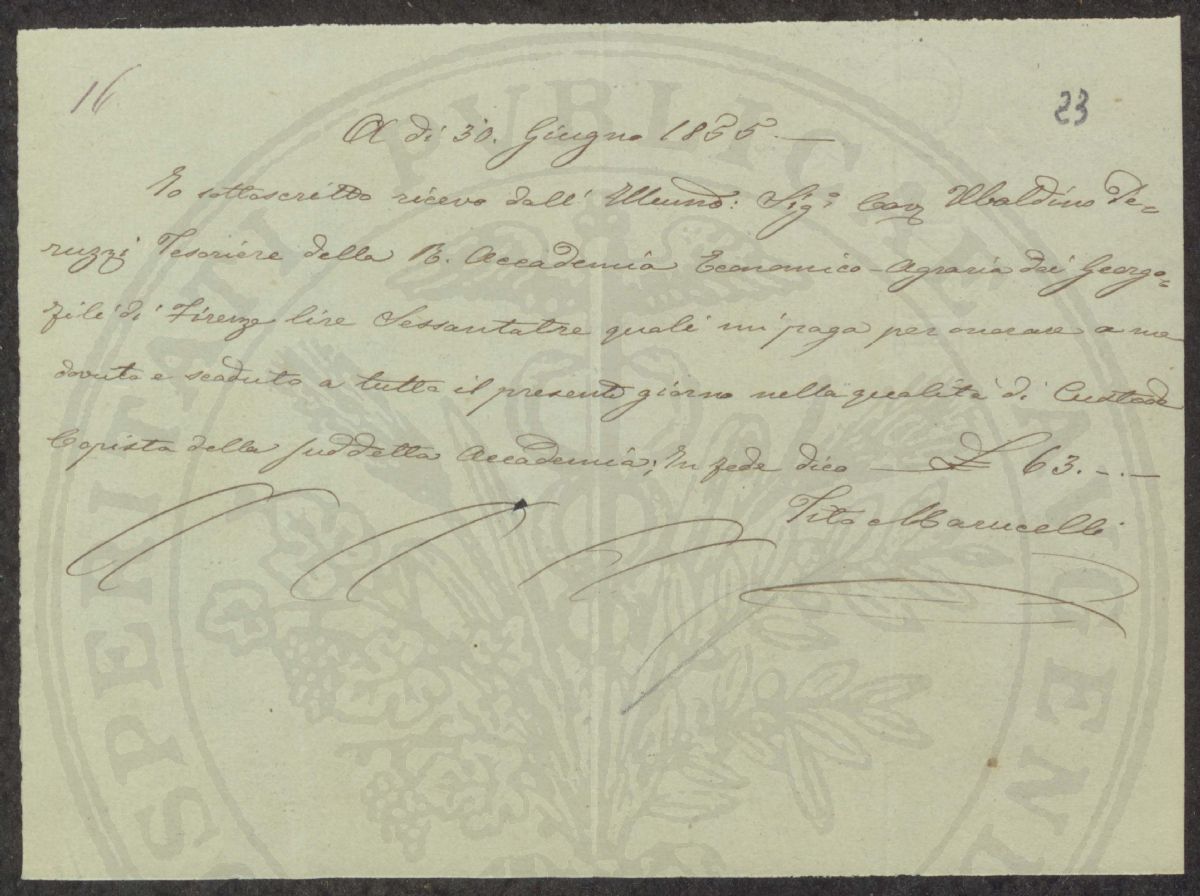 16
23
A dì 30. Giugno 1855 —
Io sottoscritto ricevo dall' Illmo: Sig: Cav Ubaldino Pe=
ruzzi Tesoriere della R. Accademia Economico-Agraria dei Georgo=
fili di Firenze lire Sessantatre quali mi paga per onorare a me
dovuto e scaduto a tutto il presente giorno nella qualità di Custode
Copista della suddetta Accademia; In fede dico — £ 63.-.-
Tito Marucelli
PROSPERITATI PUBLICAE AUGENDAE